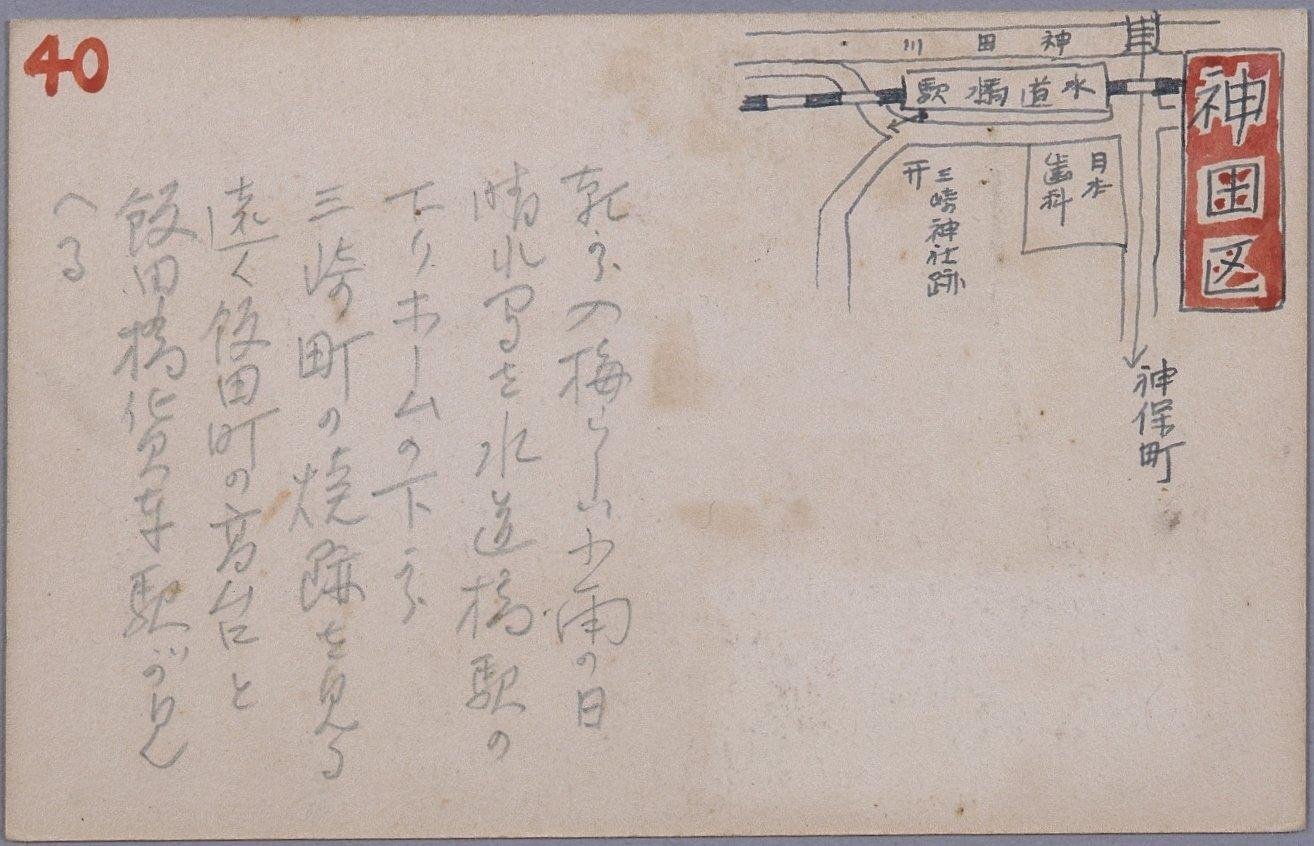 40
神田区
神田川
水道橋駅
日本
歯科
三崎神社跡
神保町
入梅らしい小雨の日
晴れ間を水道橋駅の
下りホームの下から
三崎町の焼跡を見る
遠く飯田町の高台と
飯田橋貨車駅が見
へる